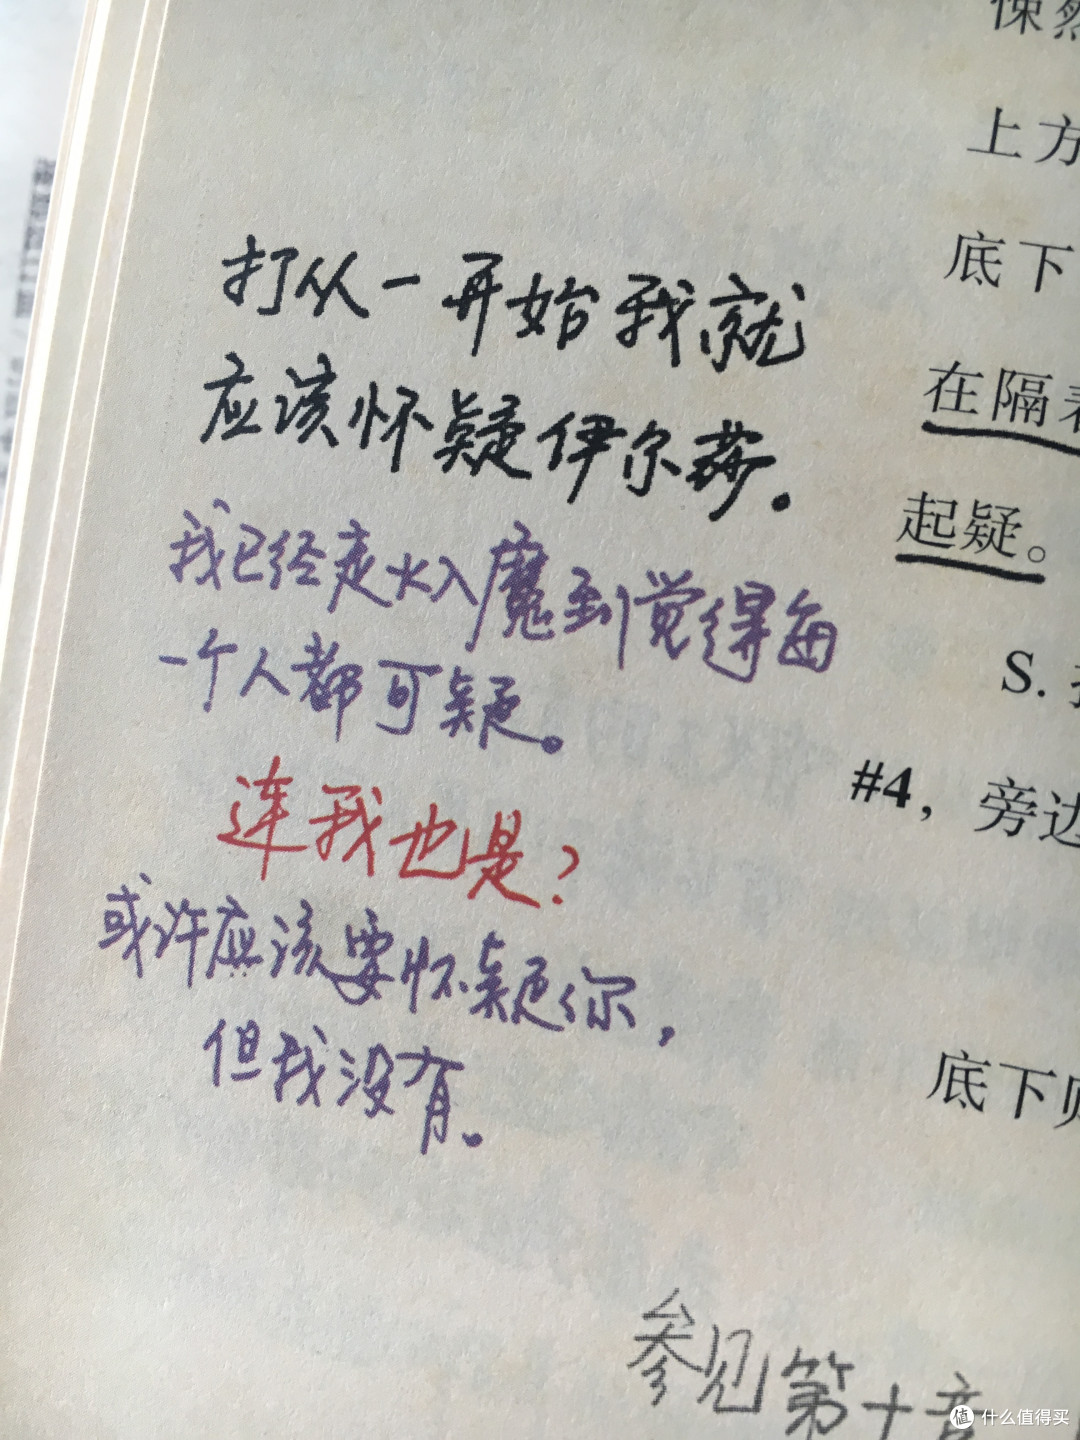 上方
底下
打从一开始我就
在隔着
应该怀疑伊尔莎。
起疑。
我已经走火入魔到觉得每
一个人都可疑。
S.
#4，旁边
连我也是?
或许应该要怀疑你，
但我没有。
底下
参见第十章
值 什么值得买